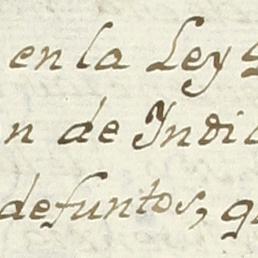 en la Ley
n de Indi
defuntos, q